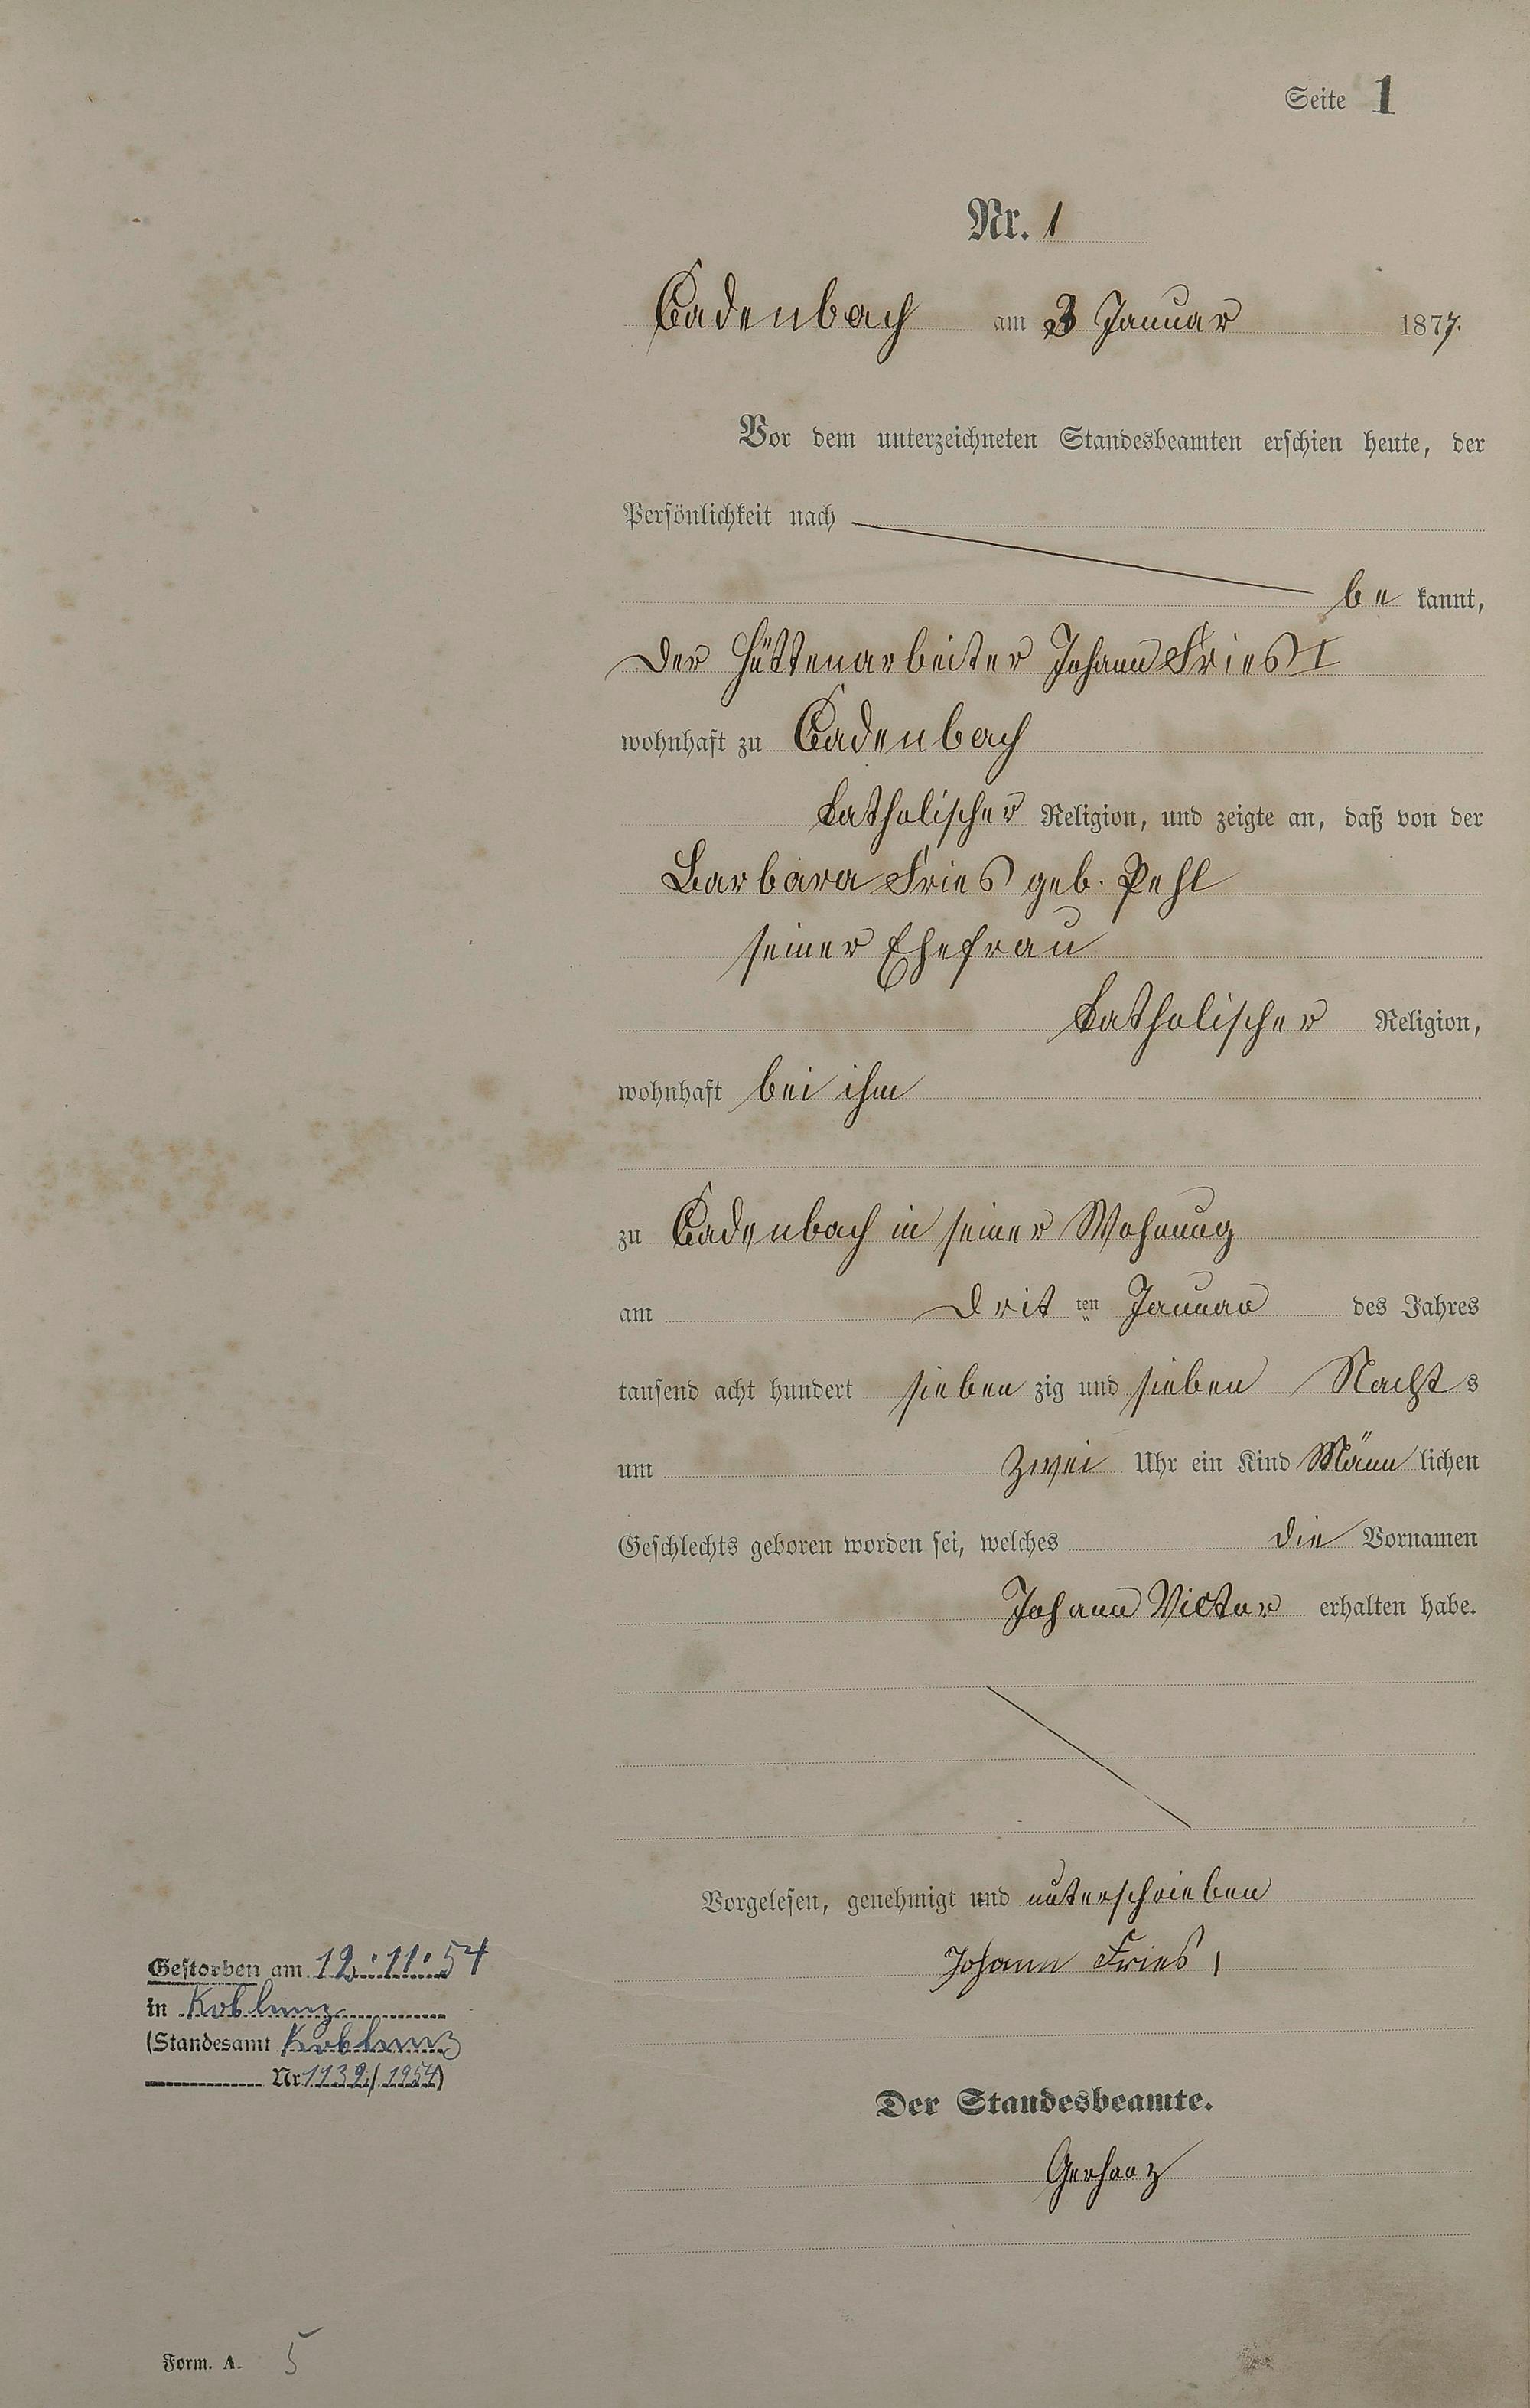 Seite 1
Nr. 1
Cadenbach am 3 Januar 1877.
Vor dem unterzeichneten Standesbeamten erschien heute, der
Persönlichkeit nach
be kannt,
der Hüttenarbeiter Johann Fries I
wohnhaft zu Cadenbach
katholischer Religion, und zeigte an, daß von der
Barbara Fries geb. Pehl
seiner Ehefrau
katholischer Religion,
wohnhaft bei ihm
zu Cadenbach in seiner Wohnung
am drit ten Januar des Jahres
tausend acht hundert sieben zig und sieben Nacht s
um zwei Uhr ein Kind Männ lichen
Geschlechts geboren worden sei, welches die Vornamen
Johann Victor erhalten habe.
Vorgelesen, genehmigt und unterschrieben
Johann Fries I
Der Standesbeamte.
Gerharz
Gestorben am 12.11.54
in Koblenz
(Standesamt Koblenz
Nr. 1132/1954)
Form. A. 5